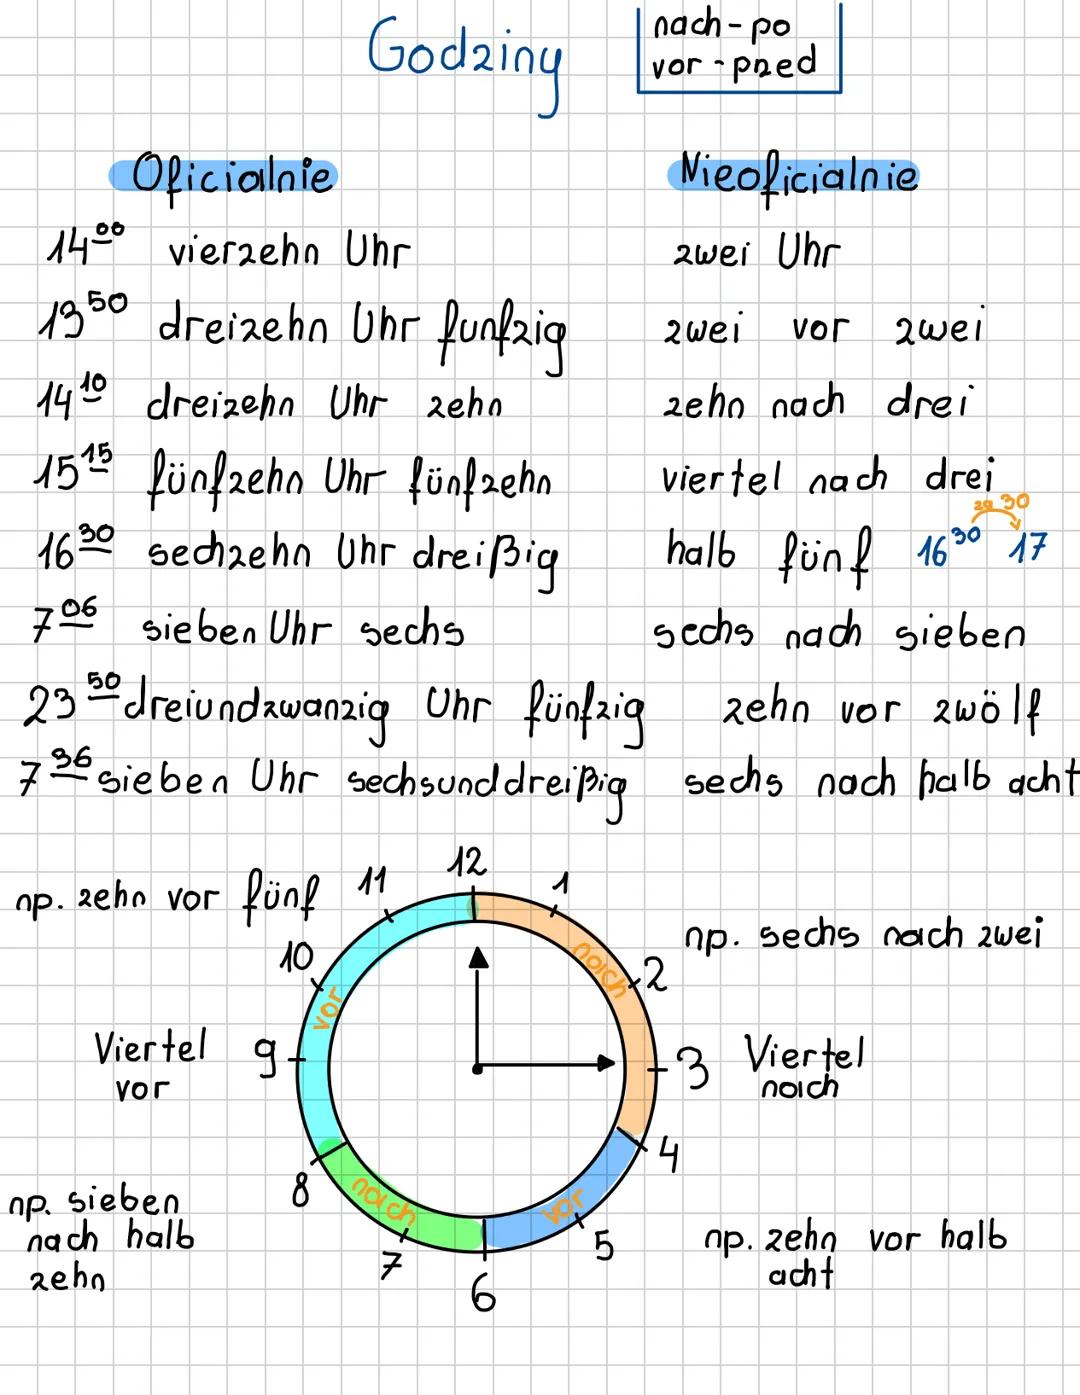 Godziny
nach - po
vor - przed
Oficialnie
Nieoficialnie
14⁰⁰ vierzehn Uhr
zwei Uhr
13⁵⁰ dreizehn Uhr funfzig
zwei vor zwei
14¹⁰ dreizehn Uhr zehn
zehn nach drei
15¹⁵ fünfzehn Uhr fünfzehn
viertel nach drei
16³⁰ sechzehn Uhr dreißig
halb fünf 16³⁰ za 30 17
7⁰⁶ sieben Uhr sechs
sechs nach sieben
23⁵⁰ dreiundzwanzig Uhr fünfzig
zehn vor zwölf
7³⁶ sieben Uhr sechsunddreißig
sechs nach halb acht
np. zehn vor fünf
11
12
1
10
vor
nach
2
np. sechs nach zwei
Viertel
vor
9
3
Viertel
nach
8
nach
vor
4
np. sieben
nach halb
zehn
7
6
5
np. zehn vor halb
acht